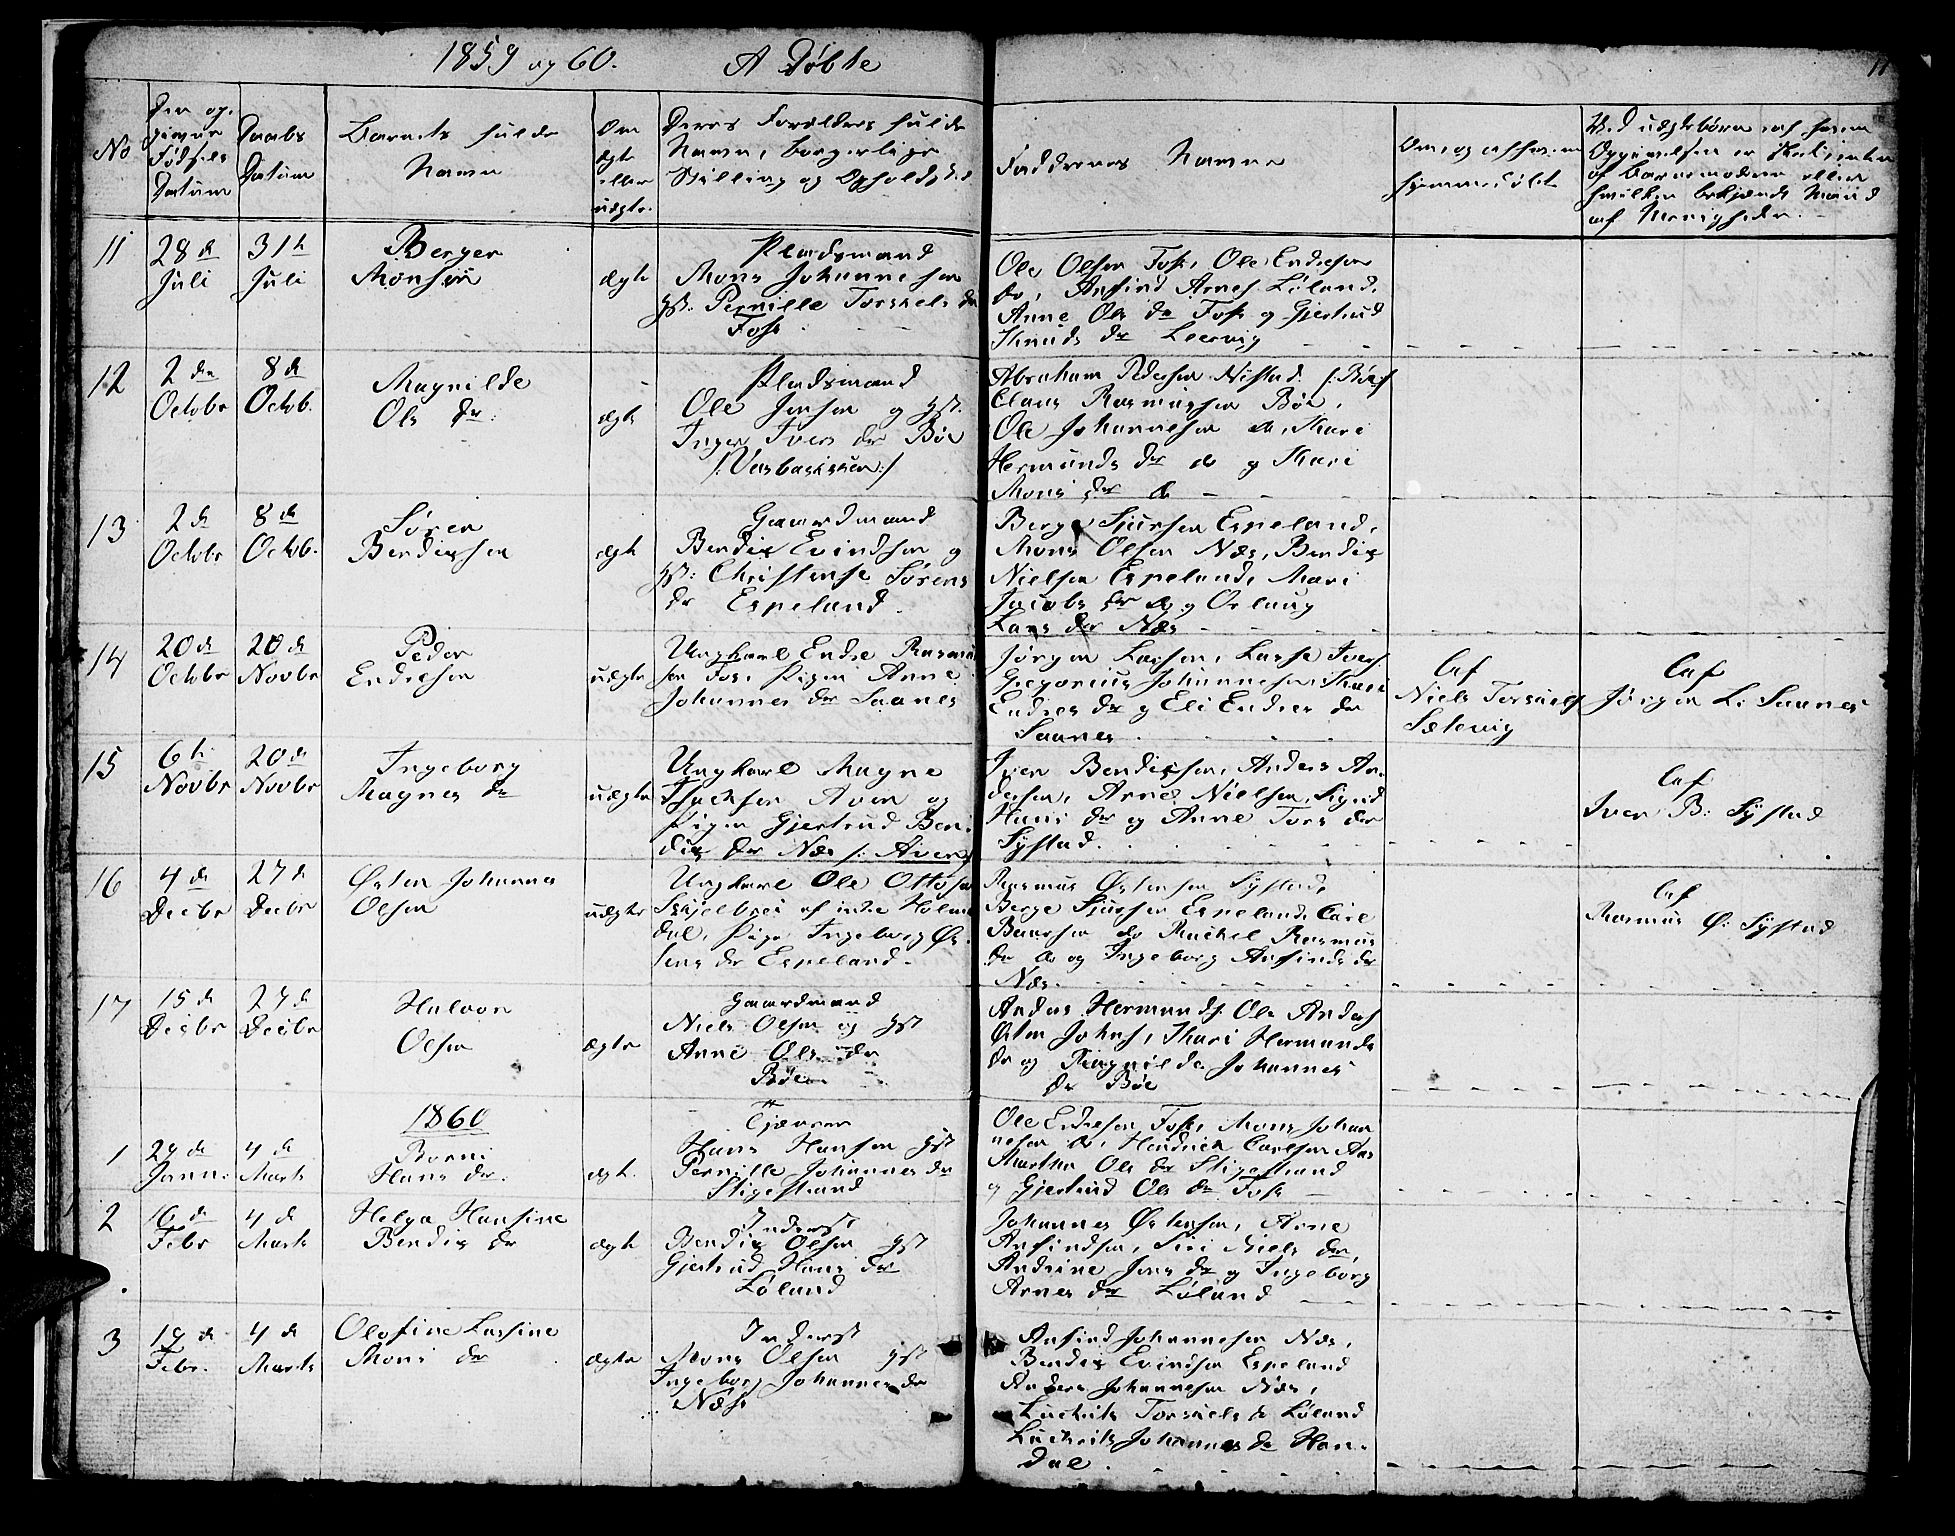 1859 og 60. A Døbte
11
No
Den op-
givne
Fødsels
Datum
Daabs
Datum
Barnets fulde
Navn
Om
ægte
eller
uægte.
Deres Forældres fulde
Navne, borgerlige
Stilling og Opholdsted
Faddernes Navne
Om, og af hvem
hjemmedøbt
Ved uægte børn af hvem
Opgivelsen er
af Barnemoderen eller
hvilken bekjendt Mand
af Menigheden.
11
28 de
Juli
31te
Juli
Berger
Monsen
ægte
Pladsmand
Mons Johannesen
gst: Pernille Torkels dr
Foss
Ole Olsen Foss, Ole Endresen
do, Ansind Arnes Løland,
Anne Ols dr Foss og Gjertrud
Knuds dr Leervig
12
2 den
Octobr
8 de
Octob.
Magnilde
Ols dr:
ægte
Pladsmand
Ole Jensen og gst.
Inger Ivers dr Böe
Abraham Pedersen Nistad /: Böe :/
Claus Rasmussen Böe,
Ole Johannesen do, Kari
Hermunds dr do og Kari
Mons dr do
13
2 de
Octobr
8 de
Octob.
Søren
Bendixsen
ægte
Gaardmand
Bendix Evindsen og
gst: Christense Sørens
dr Espeland.
Berge Sjursen Espeland,
Mons Olsen Næs, Bendix
Nielsen Espeland, Mari
Jacobs dr do og Orlaug
Lars dr Næs
14
20 de
Octobr
20 de
Novbr
Peder
Endresen
uægte
Ungkarl Endre Rasmus
sen Foss, Pigen Anne
Johannes dr Saanes
Jørgen Larsen, Lasse Ivers
Gregorius Johannesen, Kari
Endres dr og Eli Endres dr
Saanes.
Af
Niels Torkiels
Sætevig
Af
Jørgen L: Saanes
15
6te
Novbr
20 de
Novbr
Ingeborg
Magnes dr
uægte
Ungkarl Magne
Isachsen Aven og
Pigen Gjertrud Ben-
dix dr Næs /: Aven :/
Iver Bendixsen, Anders An-
dersen, Arne Nielsen, Sigrid
Hans dr og Anne Tors dr
Systad.
Af
Iver B: Systad
16
4 de
Decbr
27 de
Decbr
Østen Johannes
Olsen
uægte
Ungkarl Ole Ottosen
Skjelbrei af indre Holme
dal, Pige Ingeborg Øs-
tens dr Espeland.
Rasmus Østensen Systad,
Berge Sjursen Espeland, Carl
do Rachel Rasmus
dr do og Ingeborg Ansinds dr
Næs.
Af
Rasmus Ø: Systad
17
15 de
Decbr
27 de
Decbr
Halvor
Olsen
ægte
Gaardmand
Niels Olsen og gst
Anne Ols dr
Böe
Anders Hermunds, Ole Anders
Østen Johns, Kari Hermunds
dr og Ragnilde Johannes
dr Böe
1860
1
29 de
Janu.
4 de
Marts
Borni
Hans dr.
ægte.
Tjæner
Hans Hansen gst
Pernille Johannes dr
Stigestrand
Ole Endresen Foss, Mons Johan
nesen do, Hendrick Carlsen Aas
Martha Ols dr Stigestrand
og Gjertrud Ols dr Foss
2
16 de
Febr
4 de
Marts
Helga Hansine
Bendix dr
ægte
Inderst
Bendix Olsen gst
Gjertrud Hans dr
Løland
Johannes Østensen, Arne
Ansindsen, Siri Niels dr,
Andrine Jens dr og Ingeborg
Arnes dr Løland
3
19 de
Febr.
4 de
Marts
Olofine Larsine
Mons dr
ægte
Inderst
Mons Olsen gst
Ingeborg Johannes dr
Næss
Ansind Johannesen Næs,
Bendix Evindsen Espeland
Anders Johannesen Næs,
Torkiels dr Løland
Johannes dr Hovn-
dal.